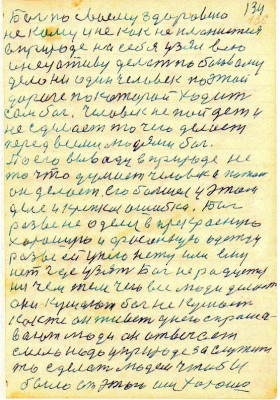 134
Бог по своему здоровию
не кому и не как не
в природе на себя узял всю
делать по божому
дело ни один человек по этой
дороге по которой ходит
сам бог. Человек не пойдет и
не сделает то чего делает
перед всеми людями бог.
По его выводу в природе не
то что думает человек а потом
он делает его большая у этом
деле и крепкая ошибка. Бог
разве не одел в прекрасную
хорошую и фасонную одежду
разве ей угило нету или ему
нет где узять Бог не радуется
ни чем тем чего все люди делают
они кушают бог не кушает
как же он живет у него спраши
вают люди он отвечает
надо у природе заслужить
то сделать людей чтобы
было от этого им хорошо